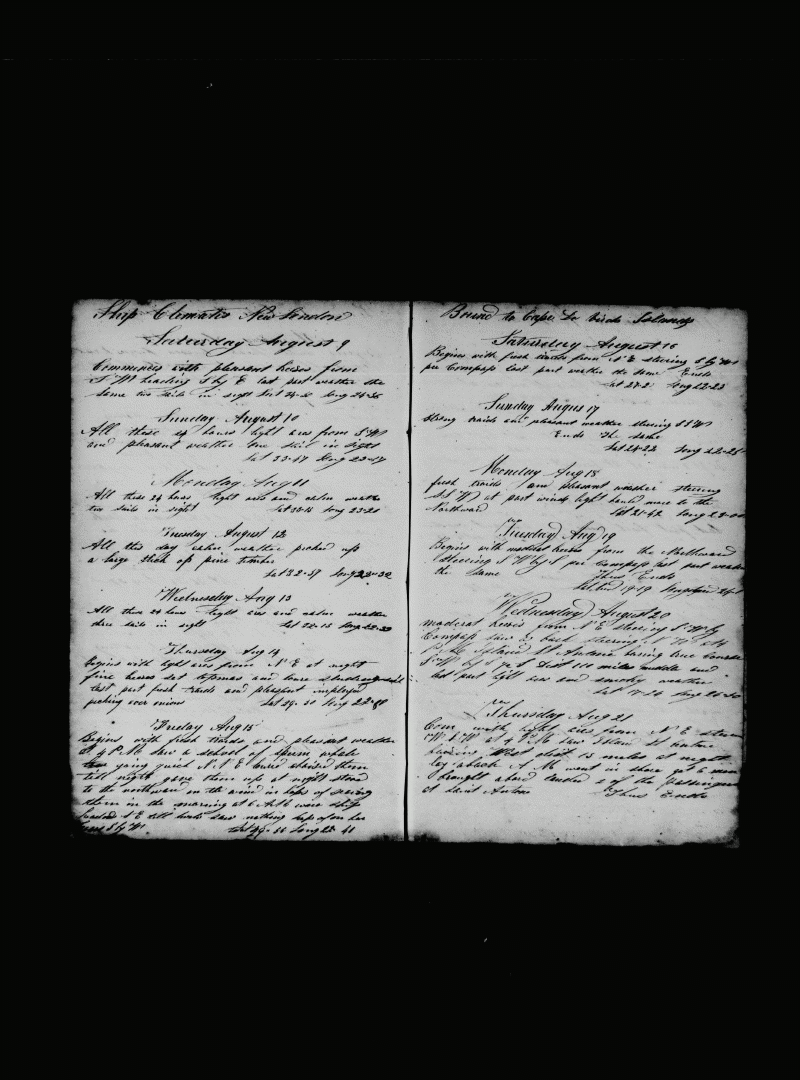 Ship Clematis New London
Saturday August 9
Commences with pleasant breses from
S W heading S by E last part weather the
same two sails in sight Lat
Sunday August 10
All these 24 houres light ares from S W
and pleasant weather one sail in sight
Lat 33-47 Long 23-17
Monday Aug 11
All these 24 houres light ares and calm weather
two sails in sight Lat 33-15 Long 23-20
Tuesday August 12
All this day calm weather picked up
a large stick of pine timber
Lat 32-57 Long 22-30
Wednesday Aug 13
All these 24 houres light ares and calm weather
three sails in sight Lat Long
Thursday Aug 14
Begins with light ares from N E at night
fine breses set topmas and lower studdingsails
last part fresh traids and pleasant imployed
picking over onions Lat 29-30 Long
Friday Aug 15
Begins with fresh traids and pleasant weather
at 4 P M saw a school of sperm whale
going quick N N E chased them
till night gave them up at night stood
to the northward in hopes of seeing
them in the morning at 6 A M wore ship
headed S E till saw nothing kept of on her
corse S by W Lat Long
Bound to Cape De Virds Islands
Saturday August 16
Begins with fresh traids from N E stearing S by W
per Compass last part weather the same Ends
Lat 27-21 Long 22-23
Sunday August 17
Strong traids and pleasant weather stearing S S W
Ends the same
Lat 24-22 Long 22-25
Monday Aug 18
fresh traids and pleasant weather stearing
S S W at part winds light hauled more to the
Northward Lat 21-42 Long
Tuesday Aug 19
Begins with moderat breses from the Northward
stearing S W by S per Compass last part weather
the same Thus Ends
Lat 19-19 Long
Wednesday August 20
moderat breses from N E stearing S W by
Compass saw a bark stearing
P M Island St Antonio baring true Course
S W by S Dist 110 miles middle and
last part light ares and smoky weather
Lat 17-56 Long
Thursday Aug 21
Com with light ares from N E stearing
W S W at 4 P M saw Island St Antone
baring West dist 15 miles at night
lay aback A M went in shore got
brought abord landed 2 of the Passengers
at Saint Antone Thus Ends